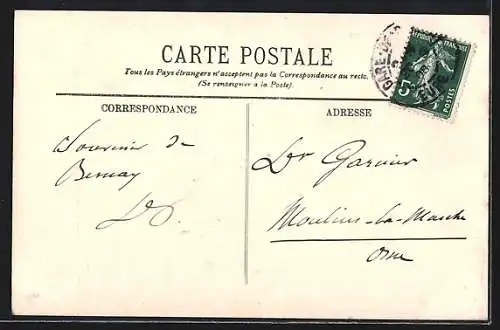 CARTE POSTALE
Tous les Pays étrangers n'acceptent pas la Correspondance au recto.
(Se renseigner à la Poste).
CORRESPONDANCE
ADRESSE
GARE
FRANÇAISE
5c
POSTES
Souvenir de
Bernay
Dr Garnier
Moulins-la-Marche
Orne